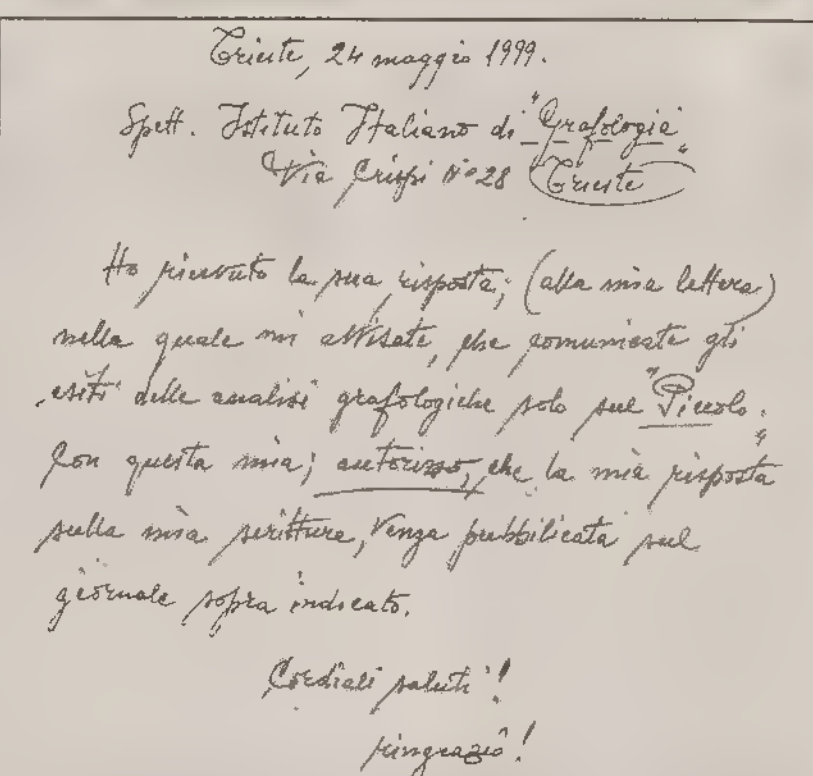 Trieste, 24 maggio 1999.
Spett. Istituto Italiano di "Grafologia"
Via Crispi N° 28 "Trieste"
Ho ricevuto la sua risposta; (alla mia lettera)
nella quale mi avvisate, che comunicate gli
esiti delle analisi grafologiche solo sul "Piccolo".
Con questa mia; autorizzo, che la mia risposta
sulla mia scrittura, venga pubbilicata sul
giornale sopra indicato.
Cordiali saluti!
ringrazio!